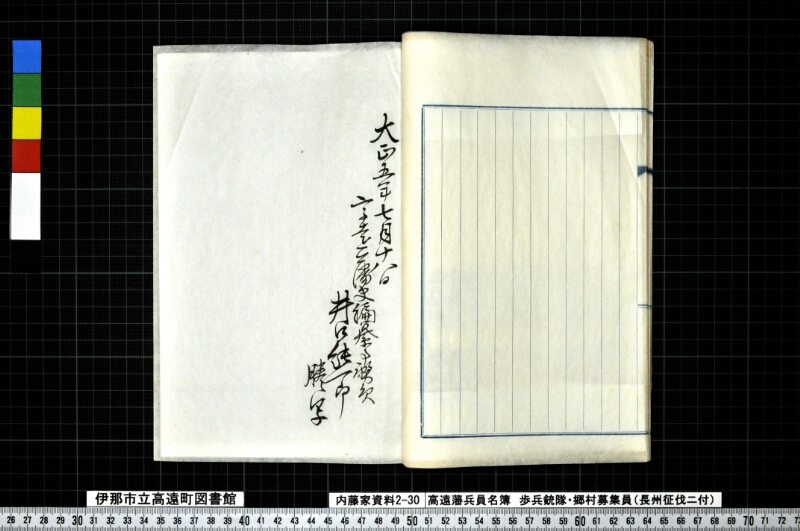 大正五年七月十八日
藩史編纂
井口
謄写
伊那市立高遠町図書館
内藤家資料2-30 高遠藩兵員名簿 歩兵銃隊・郷村募集員(長州征伐ニ付)
26 27 28 29 30 31 32 33 34 35 36 37 38 39 40 41 42 43 44 45 46 47 48 49 50 51 52 53 54 55 56 57 58 59 60 61 62 63 64 65 66 67 68 69 70 71 72